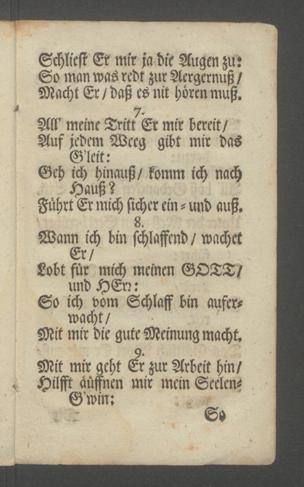 Schließt Er mir ja die Augen zu:
So man was redt zur Aergernuß/
Macht Er/ daß es nit hören muß.
7.
All' meine Tritt Er mir bereit/
Auf jedem Weeg gibt mir das
G'leit:
Geh ich hinauß/ komm ich nach
Hauß?
Führt Er mich sicher ein- und auß.
8.
Wann ich bin schlaffend/ wachet
Er/
Lobt für mich meinen GOTT/
und HErr:
So ich vom Schlaff bin aufer-
wacht/
Mit mir die gute Meinung macht.
9.
Mit mir geht Er zur Arbeit hin/
Hilfft äüffnen mir mein Seelen-
G'win:
So